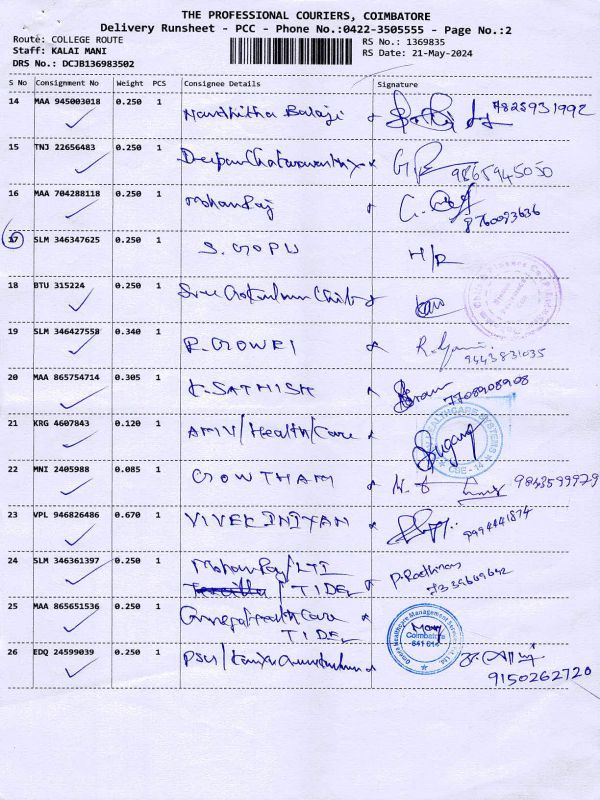 THE PROFESSIONAL COURIERS, COIMBATORE
Delivery Runsheet - PCC - Phone No.:0422-3505555 - Page No.:2
Route: COLLEGE ROUTE
Staff: KALAI MANI
DRS No.: DCJB136983502
RS No.: 1369835
RS Date: 21-May-2024
S No Consignment No Weight PCS Consignee Details Signature
14 MAA 945003018 0.250 1 Nandhitha Balaji 7825931992
15 TNJ 22656483 0.250 1 9865945050
16 MAA 704288118 0.250 1 Mohan Raj 8760093636
17 SLM 346347625 0.250 1 S. GOPU H/R
18 BTU 315224 0.250 1 Sree
19 SLM 346427558 0.340 1 R. GOWRI 9443831035
20 MAA 865754714 0.305 1 K. SATHISH 7708908908
HEALTHCARE SYSTEMS
CBE - 14
21 KRG 4607843 0.120 1 AMIV/Health/Care
22 MNI 2405988 0.085 1 GOWTHAM 9843599929
23 VPL 946826486 0.670 1 VIVEK INIYAN 9994441874
24 SLM 346361397 0.250 1 Mohan Raj/LTI
/ TIDEL 7339669642
25 MAA 865651536 0.250 1 Health Care
TIDEL
Healthcare Management Services
Coimbatore
641 014
26 EDQ 24599039 0.250 1 PSG/
9150262720